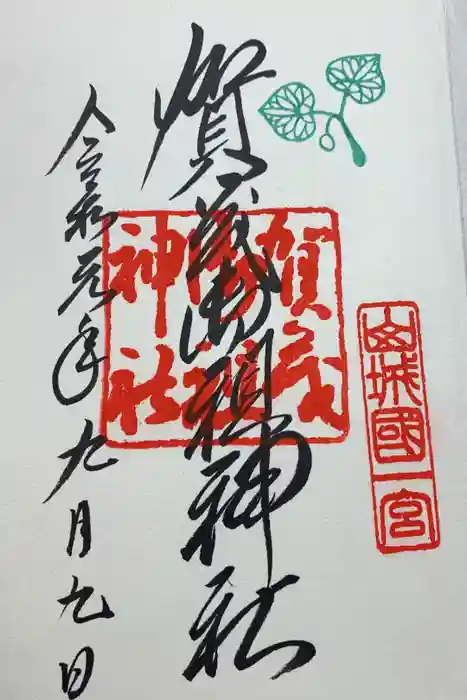 山城國一宮
賀茂御祖神社
賀茂御祖神社
令和元年九月九日